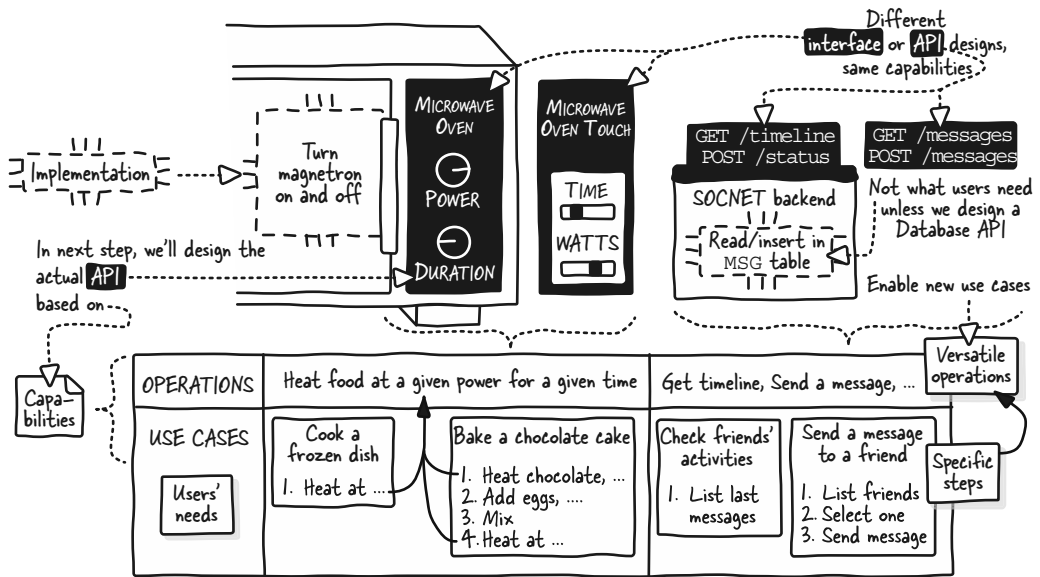 Different
interface or API designs,
same capabilities
MICROWAVE
OVEN
POWER
DURATION
MICROWAVE
OVEN TOUCH
TIME
WATTS
GET /timeline
POST /status
GET /messages
POST /messages
Implementation
Turn
magnetron
on and off
SOCNET backend
Read/insert in
MSG table
Not what users need
unless we design a
Database API
In next step, we'll design the
actual API
based on
Enable new use cases
Capa-
bilities
Versatile
operations
OPERATIONS
Heat food at a given power for a given time
Get timeline, Send a message, ...
USE CASES
Users'
needs
Cook a
frozen dish
1. Heat at ...
Bake a chocolate cake
1. Heat chocolate, ...
2. Add eggs, ....
3. Mix
4. Heat at ...
Check friends'
activities
1. List last
messages
Send a message
to a friend
1. List friends
2. Select one
3. Send message
Specific
steps